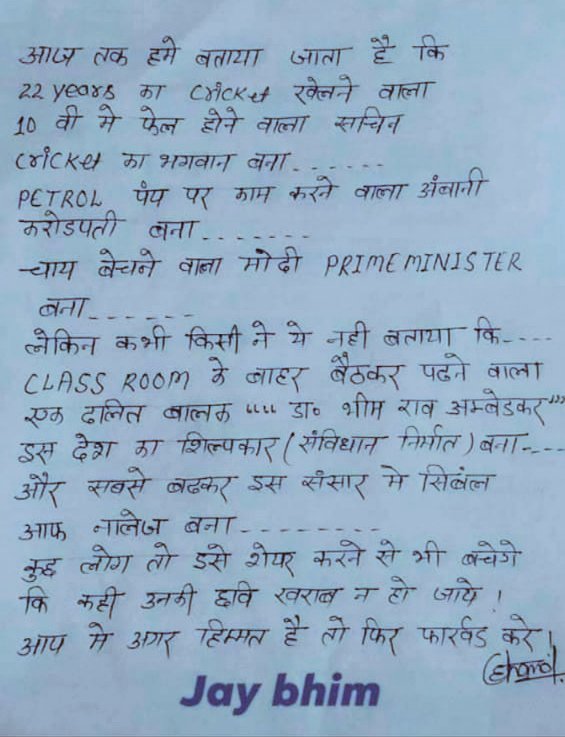 आज तक हमे बताया जाता है कि
22 years का cricket खेलने वाला
10 वी मे फेल होने वाला सचिन
cricket का भगवान बना.......
PETROL पंप पर काम करने वाला अंबानी
करोडपती बना.......
चाय बेचने वाला मोदी PRIMEMINISTER
बना......
लेकिन कभी किसी ने ये नही बताया कि....
CLASS ROOM के बाहर बैठकर पढने वाला
एक दलित बालक "" डा॰ भीम राव अम्बेडकर""
इस देश का शिल्पकार (संविधान निर्मात) बना....
और सबसे बढकर इस संसार मे सिबंल
आफ नालेज बना.........
कुछ लोग तो इसे शेयर करने से भी बचेगे
कि कही उनकी छवि खराब न हो जाये।
आप मे अगर हिम्मत है तो फिर फारर्वड करे।
Jay bhim